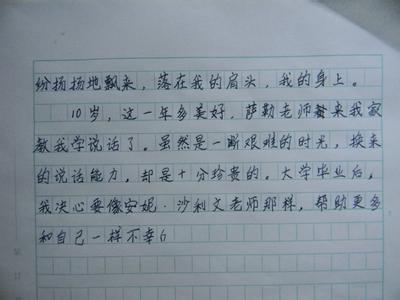 纷扬扬地飘来，落在我的肩头，我的身上。
10岁，这一年多美好，萨勒老师来我家
教我学说话了。虽然是一断艰难的时光，换来
的说话能力，却是十分珍贵的。大学毕业后，
我决心要像安妮·沙利文老师那样，帮助更多
和自己一样不幸